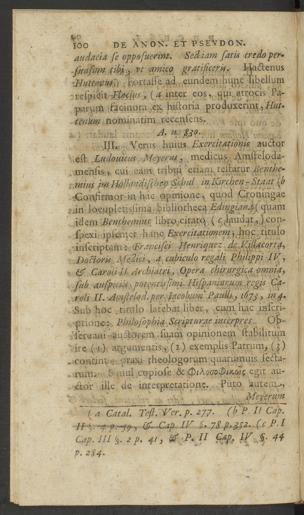 100 DE ANON. ET PSEVDON.
audacia se opposuerint. Sed jam satis credo per-
suasum tibi, vt amico gratificeris. Hactenus
Huttenus; fortasse ad eundem hunc libellum
respicit Flacius, (a inter eos, qui atrocis Pa-
parum facinora ex historia produxerint, Hut-
tenum nominatim recensens.
A. n. 830.
III. Verus huius Exercitationis auctor
est Ludouicus Meyerus, medicus Amsteloda-
mensis, cui eam tribui etiam testatur Benthe-
mius im Holländischen Schul- und Kirchen-Staat (b
Confirmor in hac opinione, quod Groningae
in locupletissima bibliotheca quam
idem Benthemius libro citato (c laudat,) con-
spexi ipsemet hanc Exercitationem, hoc titulo
inscriptam: Francisci Henriquez de Villacorta,
Doctoris Medici, a cubiculo regali Philippi IV,
& Caroli II. Archiatri, Opera chirurgica omnia,
sub auspiciis potentissimi Hispaniarum regis Ca-
roli II. Amstelod. per Jacobum Pauli, 1673, in 4.
Sub hoc titulo latebat liber, cum hac inscri-
ptione: Philosophia Scripturae interpres. Ob-
seruani auctorem suam opinionem stabilitum
ire (1) argumentis, (2) exemplis Patrum, (3)
praxi theologorum quarumuis secta-
rum. Simul copiose & Φιλοσοφικῶς egit au-
ctor ille de interpretatione. Puto autem,
Meyerum
(a Catal. Test. Ver. p. 277. (b P. II Cap.
& Cap IV §. 78 p. 352. (c P. I
Cap. III §. 2 p. 41, & P. II Cap, IV §. 44
p. 284.